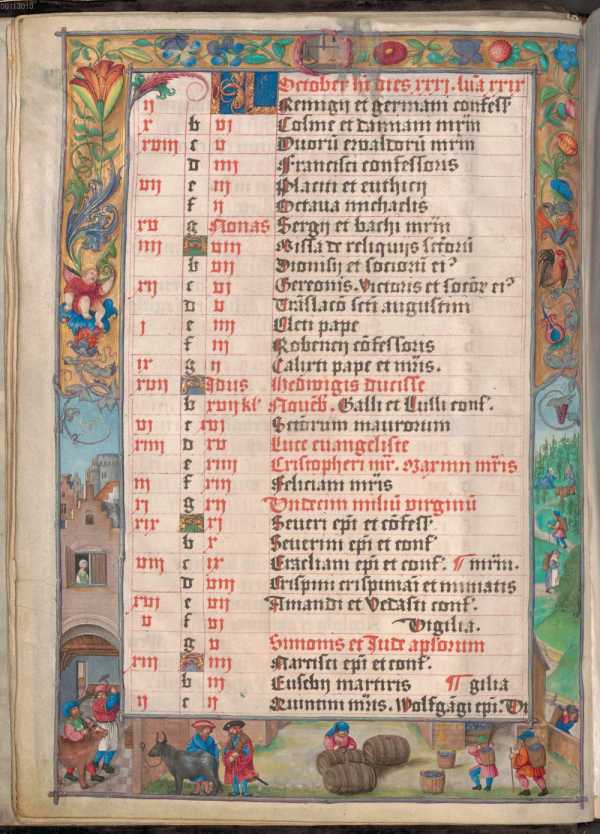 00113013
October hʒ dies xxxi. lūa xxix
ii Remigij et germani confess
x b vi Cosme et damiani mrīm
xviii c v Duorū ewaldorū mrīm
d iiii Francisci confessoris
vii e iii Placiti et euthicij
f ii Octava michaelis
xv g Nonas Sergij et bachi mrīm
iiii viii Missa de reliquijs sctōrū
b vii Dionisij et sociorū eiꝰ
xii c vi Gereonis. Victoris et socōꝝ eiꝰ
d v Trāslacō scti augustini
i e iiii Cleti pape
f iii confessoris
ix g ii Calixti pape et mr̄is.
xvii Idus Hedwigis ducisse
b xvii kl Nouēb. Galli et Lulli conf.
vi c xvi Sctōrum maurorum
xiiii d xv Luce euangeliste
e xiiii Cristoferi mr̄. Maximi mr̄is
iii f xiii Feliciani mr̄is
xi g xii Undecim miliū virginū
xix xi Seueri epī et cōfess
b x Seuerini epī et conf
viii c ix epī et conf. ¶ mrīm.
d viii Crispini crispiniani et
xvi e vii Amandi et Vedasti conf.
v f vi Vigilia.
g v Simonis et Iude aplsorum
xiii iiii Narcisci epī et conf.
b iii Eusebij martiris ¶ gilia
ii c ii Quintini mr̄is. Wolfgāgi epī. Vi